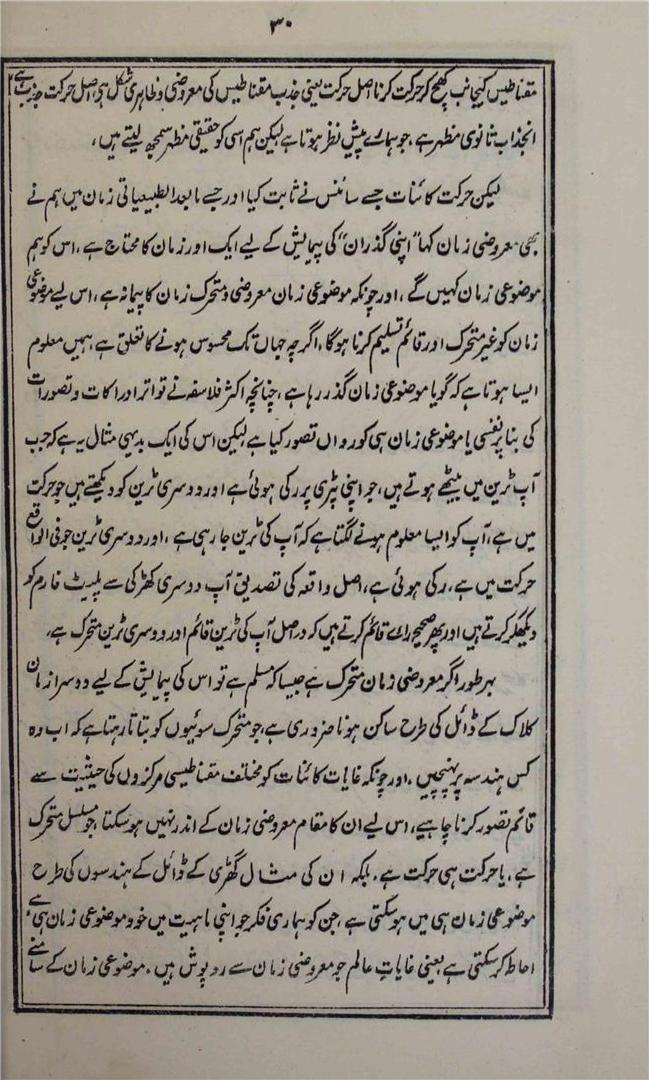 ۳۰
مقناطیس کیجانب کھچ کر حرکت کرنا اصل حرکت یعنی جذب مقناطیس کی معروضی و ظاہری شکل ہی، اصل حرکت جذب ہے
انجذاب ثانوی مظہر ہے، جو ہمارے پیش نظر ہوتا ہے لیکن ہم اسی کو حقیقی مظہر سمجھ لیتے ہیں،
لیکن حرکت کائنات جسے سائنس نے ثابت کیا اور جسے مابعد الطبیعیاتی زمان میں ہم نے
بھی معروضی زمان کہا "اپنی گذران" کی پیمایش کے لیے ایک اور زمان کا محتاج ہے، اس کو ہم
موضوعی زمان کہیں گے، اور چونکہ موضوعی زمان معروضی و متحرک زمان کا پیمانہ ہے، اس لیے موضوعی
زمان کو غیر متحرک اور قائم تسلیم کرنا ہوگا، اگرچہ جہاں تک محسوس ہونے کا تعلق ہے، ہمیں معلوم
ایسا ہوتا ہے کہ گویا موضوعی زمان گذر رہا ہے، چنانچہ اکثر فلاسفہ نے تواتر ادراکات و تصورات
کی بنا پر نفسی یا موضوعی زمان ہی کو رواں تصور کیا ہے لیکن اس کی ایک بدیہی مثال یہ ہے کہ جب
آپ ٹرین میں بیٹھے ہوتے ہیں، جو اپنی پٹری پر رکی ہوئی ہے اور دوسری ٹرین کو دیکھتے ہیں جو حرکت
میں ہے، آپ کو ایسا معلوم ہونے لگتا ہے کہ آپ کی ٹرین جا رہی ہے، اور دوسری ٹرین جو فی الواقع
حرکت میں ہے، رکی ہوئی ہے، اصل واقعہ کی تصدیق آپ دوسری کھڑکی سے پلیٹ فارم کو
دیکھکر کرتے ہیں اور پھر صحیح رائے قائم کرتے ہیں کہ دراصل آپ کی ٹرین قائم اور دوسری ٹرین متحرک ہے،
بہر طور اگر معروضی زمان متحرک ہے جیسا کہ مسلم ہے تو اس کی پیمایش کے لیے دوسرا زمان
کلاک کے ڈائل کی طرح ساکن ہونا ضروری ہے، جو متحرک سوئیوں کو بتاتا رہتا ہے کہ اب وہ
کس ہندسہ پر پہنچیں، اور چونکہ غایات کائنات کو مختلف مقناطیسی مرکزوں کی حیثیت سے
قائم تصور کرنا چاہیے، اس لیے ان کا مقام معروضی زمان کے اندر نہیں ہو سکتا، جو مسلسل متحرک
ہے، یا حرکت ہی حرکت ہے، بلکہ ان کی مثال گھڑی کے ڈائل کے ہندسوں کی طرح
موضوعی زمان ہی میں ہو سکتی ہے، جن کو ہماری فکر جو اپنی ماہیت میں خود موضوعی زمان ہی ہے،
احاطہ کر سکتی ہے، یعنی غایات عالم جو معروضی زمان سے روپوش ہیں، موضوعی زمان کے سامنے